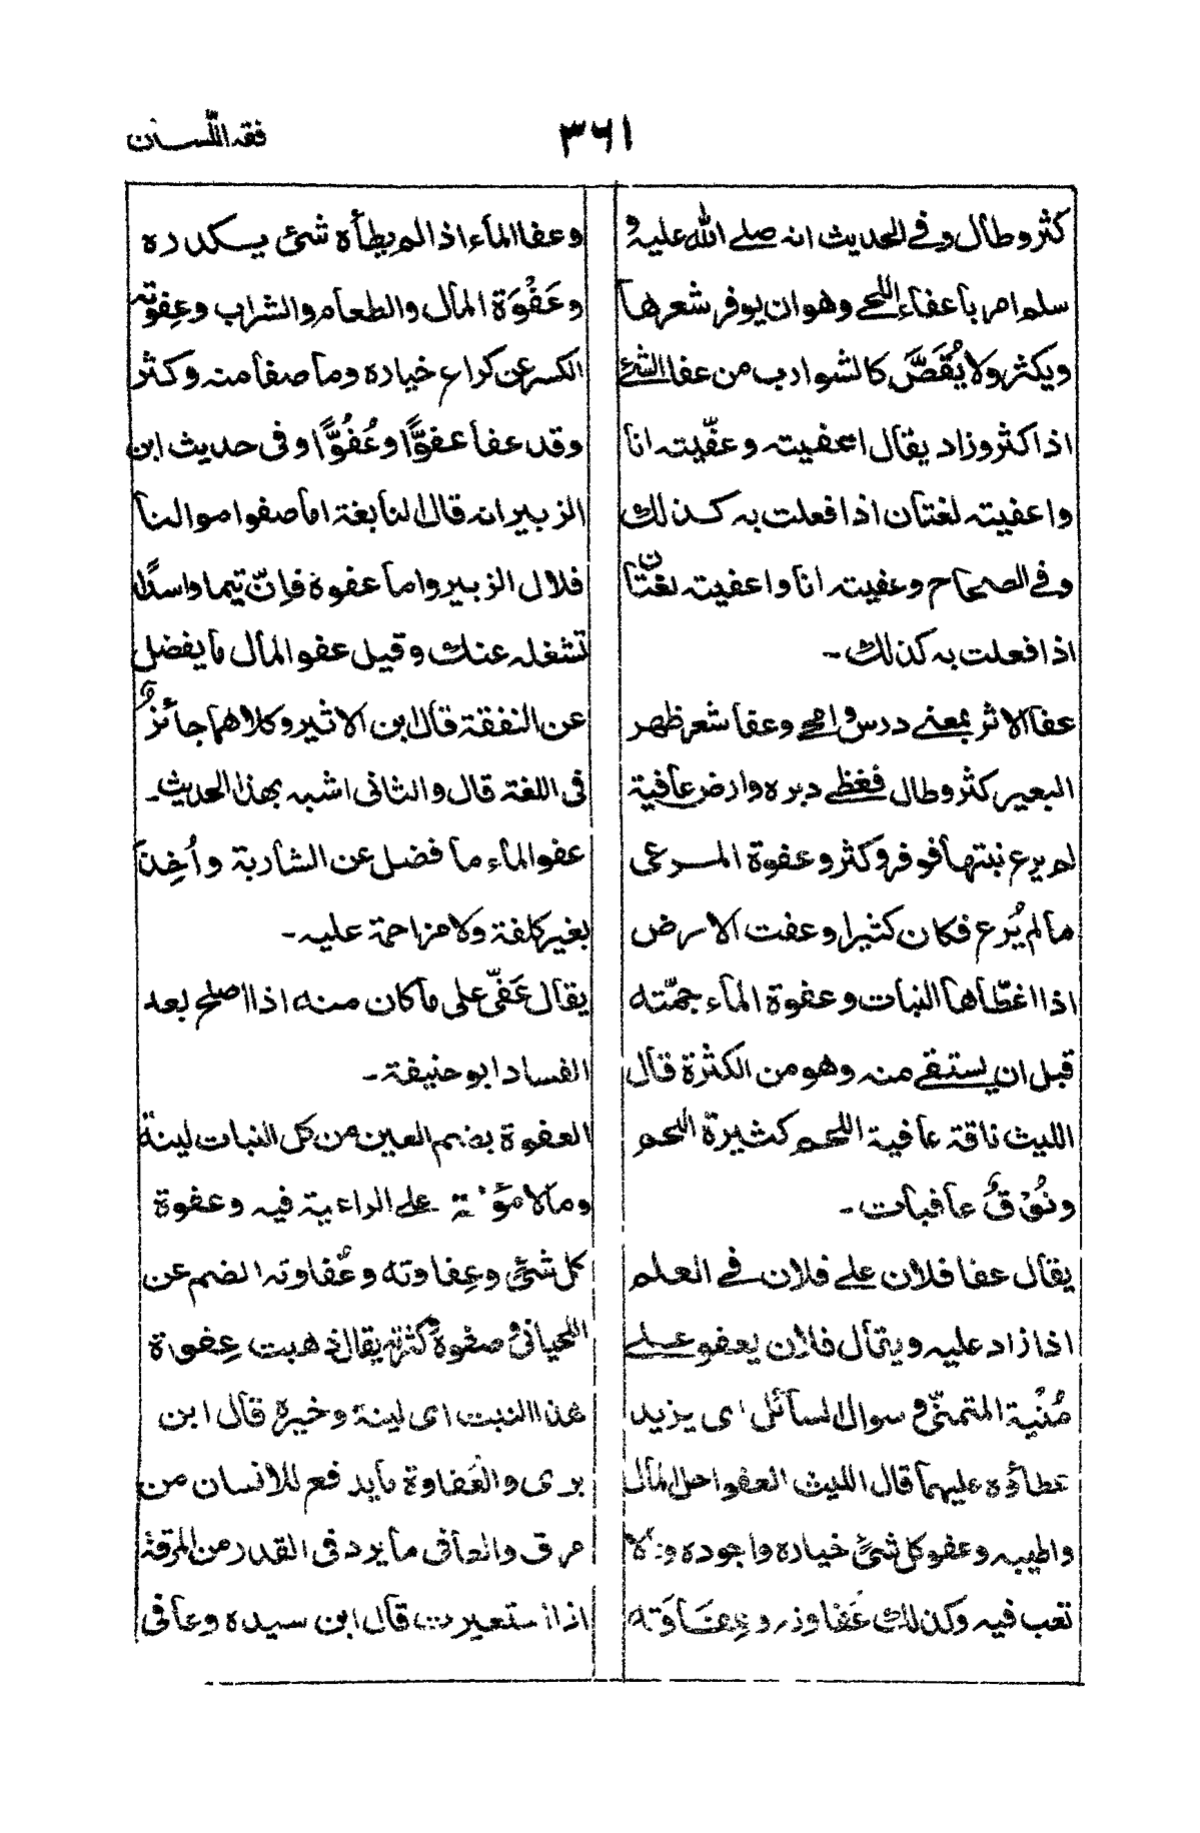 ٣٦١
فقہ اللّسان
كثر وطال وفي الحديث انه صلے الله عليہ و
سلم امر باعفاء اللحے وهو ان يوفر شعرها
ويكثر ولا يُقَصَّ كالشوارب من عفا الشئ
اذا كثر وزاد يقال اعفيته وعفّيته انا
واعفيته لغتان اذا فعلت به كذلك
وفي الصحاح وعفيته انا واعفيته لغتان
اذا فعلت به كذلك ـ
عفا الاثر بمعنے درس و امحے وعفا شعر ظهر
البعير كثر وطال فغطے دبره وارض عافية
لم يرع نبتها فوفر وكثر وعفوة المرعى
ما لم يُرع فكان كثيرا وعفت الارض
اذا غطّاها النبات وعفوة الماء جمّته
قبل ان يستقے منه وهو من الكثرة قال
الليث ناقة عافية اللحم كثيرة اللحم
ونُوْقٌ عافيات ـ
يقال عفا فلان علے فلان في العلم
اذا زاد عليه ويقال فلان يعفو علے
مُنْية المتمنّي و سوال السائل اى يزيد
عطاؤه عليهما قال الليث العفو احل المال
واطيبه وعفو كل شئ خياره واجوده و ما لا
تعب فيه وكذلك عَفاوته وعِفَاوَته
وعفا الماء اذا لم يطأه شئ يكدره
وعَفْوَة المال والطعام والشراب وعِفوته
الكسر عن كراع خياره وما صفا منه وكثر
وقد عفا عفوًّا وعُفُوًّا وفى حديث ابن
الزبير انه قال للنابغة اما صفو اموالنا
فلال الزبير واما عفوة فإنّ تيما واسدًا
تشغله عنك وقيل عفو المال ما يفضل
عن النفقة قال ابن الاثير وكلاهما جائزٌ
فى اللغة قال والثانى اشبه بهذا الحديث ـ
عفو الماء ما فضل عن الشاربة وأُخِذَ
بغير كلفة ولا مزاحمة عليه ـ
يقال عَفّى على ما كان منه اذا اصلح بعد
الفساد ابو حنيفة ـ
العفوة بضم العين من كل النبات لينه
وما لا مؤنة علے الراعية فيه وعفوة
كل شئ وعِفاوته وعُفاوته الضم عن
اللحيانى صفوة و كثرته يقال ذهبت عِفوة
هذا النبت اى لينه وخيره قال ابن
برى والعُفاوة ما يدفع للانسان من
مرق والعافى ما يرد فى القدر من المرقة
اذا استعيرت قال ابن سيده وعافى